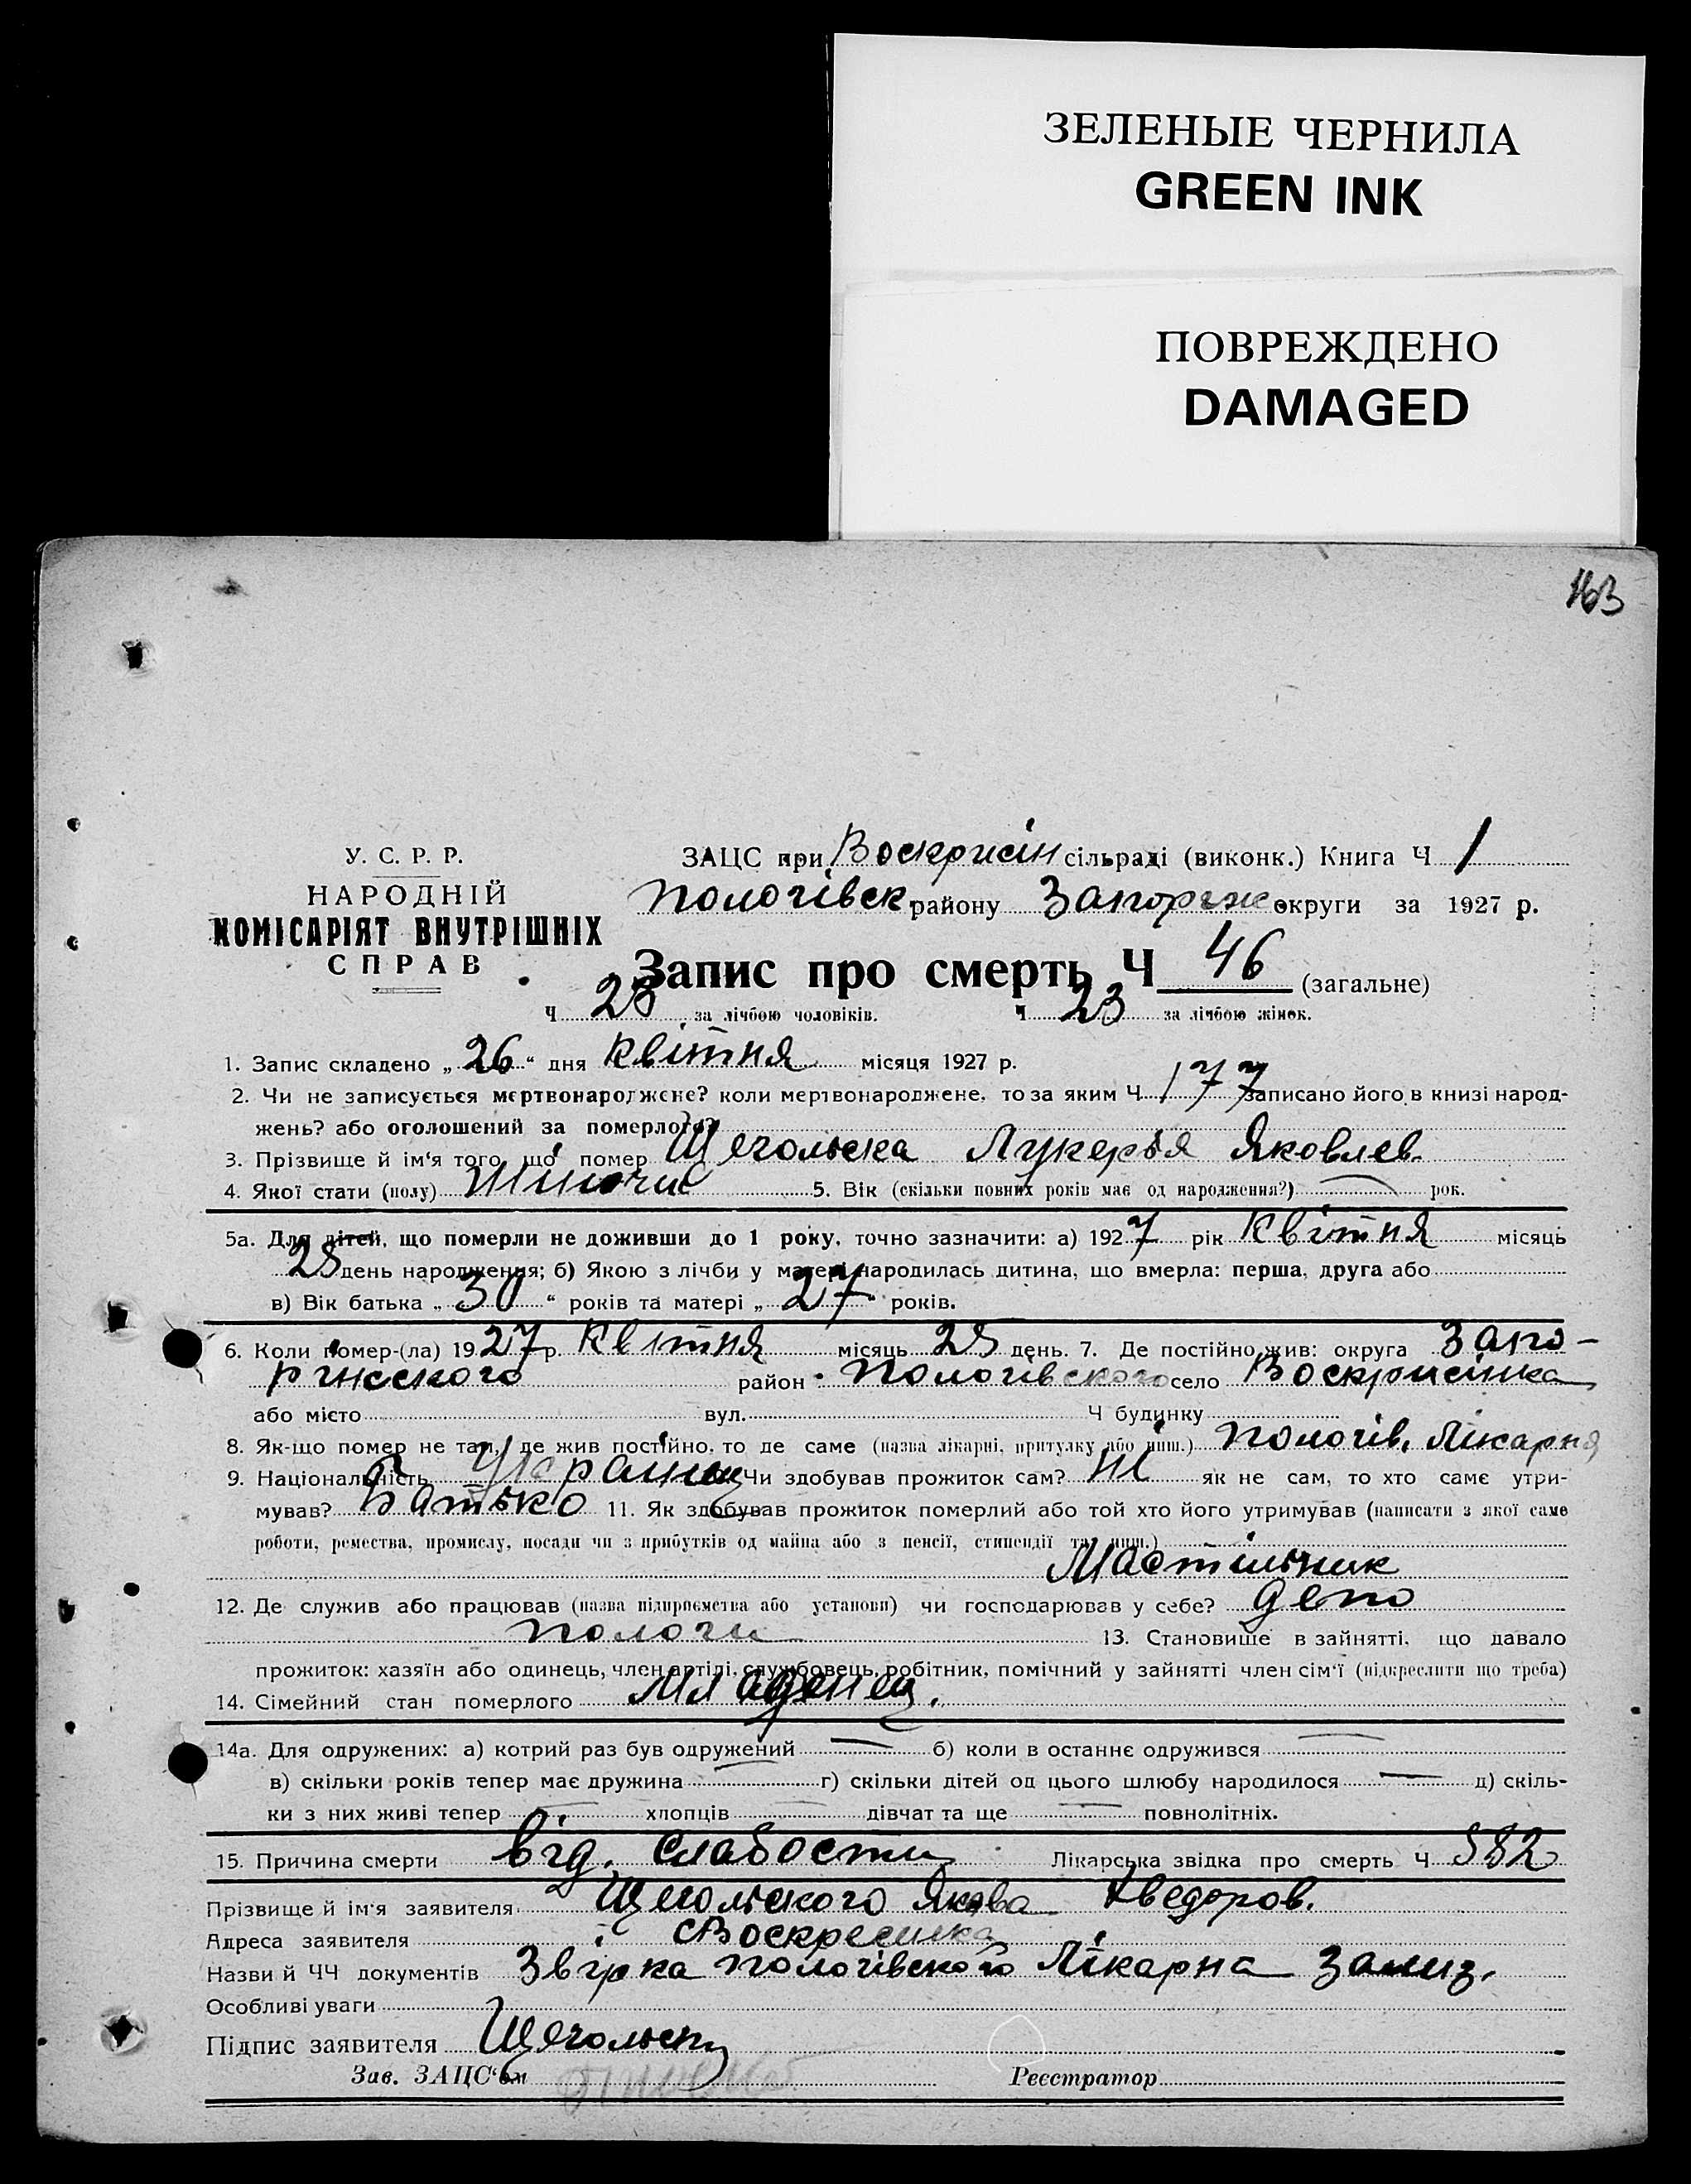 ЗЕЛЕНЫЕ ЧЕРНИЛА
GREEN INK
ПОВРЕЖДЕНО
DAMAGED
163
У. С. Р. Р.
НАРОДНІЙ
КОМІСАРІЯТ ВНУТРІШНІХ
СПРАВ
ЗАЦС при Воскрисін сільраді (виконк.) Книга Ч 1
Пологівск району Запоріж округи за 1927 р.
Запис про смерть Ч 46 (загальне)
Ч 23 за лічбою чоловіків. Ч 23 за лічбою жінок.
1. Запис складено „26“ дня Квітня місяця 1927 р.
2. Чи не записується мертвонароджене? коли мертвонароджене, то за яким Ч 177 записано його в книзі народ-
жень? або оголошений за померлого?
3. Прізвище й ім'я того, що помер Щегольска Лукерія Яковлев.
4. Якої стати (полу) 5. Вік (скільки повних років має од народження?) — рок.
5а. Для дітей, що померли не доживши до 1 року, точно зазначити: а) 1927 рік Квітня місяць
25 день народження; б) Якою з лічби у матері народилась дитина, що вмерла: перша, друга або
в) Вік батька „30“ років та матері „27“ років.
6. Коли помер-(ла) 1927 р. Квітня місяць 25 день. 7. Де постійно жив: округа Запо-
ріжского район Пологівского село Воскрисінка
або місто вул. Ч будинку
8. Як-що помер не там, де жив постійно, то де саме (назва лікарні, притулку або инш.) Пологів. Лікарня
9. Національність Украинец Чи здобував прожиток сам? Ні як не сам, то хто саме утри-
мував? Батько 11. Як здобував прожиток померлий або той хто його утримував (написати з якої саме
роботи, ремества, промислу, посади чи з прибутків од майна або з пенсії, стипендії та инш.)
Мастильник
12. Де служив або працював (назва підприємства або установи) чи господарював у себе? депо
Пологи 13. Становище в зайнятті, що давало
прожиток: хазяїн або одинець, член артілі, службовець, робітник, помічний у зайнятті член сім'ї (підкреслити що треба)
14. Сімейний стан померлого Младенец.
14а. Для одружених: а) котрий раз був одружений — б) коли в останнє одружився —
в) скільки років тепер має дружина — г) скільки дітей од цього шлюбу народилося — д) скіль-
ки з них живі тепер — хлопців — дівчат та ще — повнолітніх.
15. Причина смерти від. слабости Лікарська звідка про смерть Ч 582
Прізвище й ім'я заявителя Щегольского Якова Хведоров.
Адреса заявителя с Воскресинка
Назви й ЧЧ документів Звірка Пологівского Лікарна
Особливі уваги
Підпис заявителя Щегольский
Зав. ЗАЦС'ом
Реєстратор